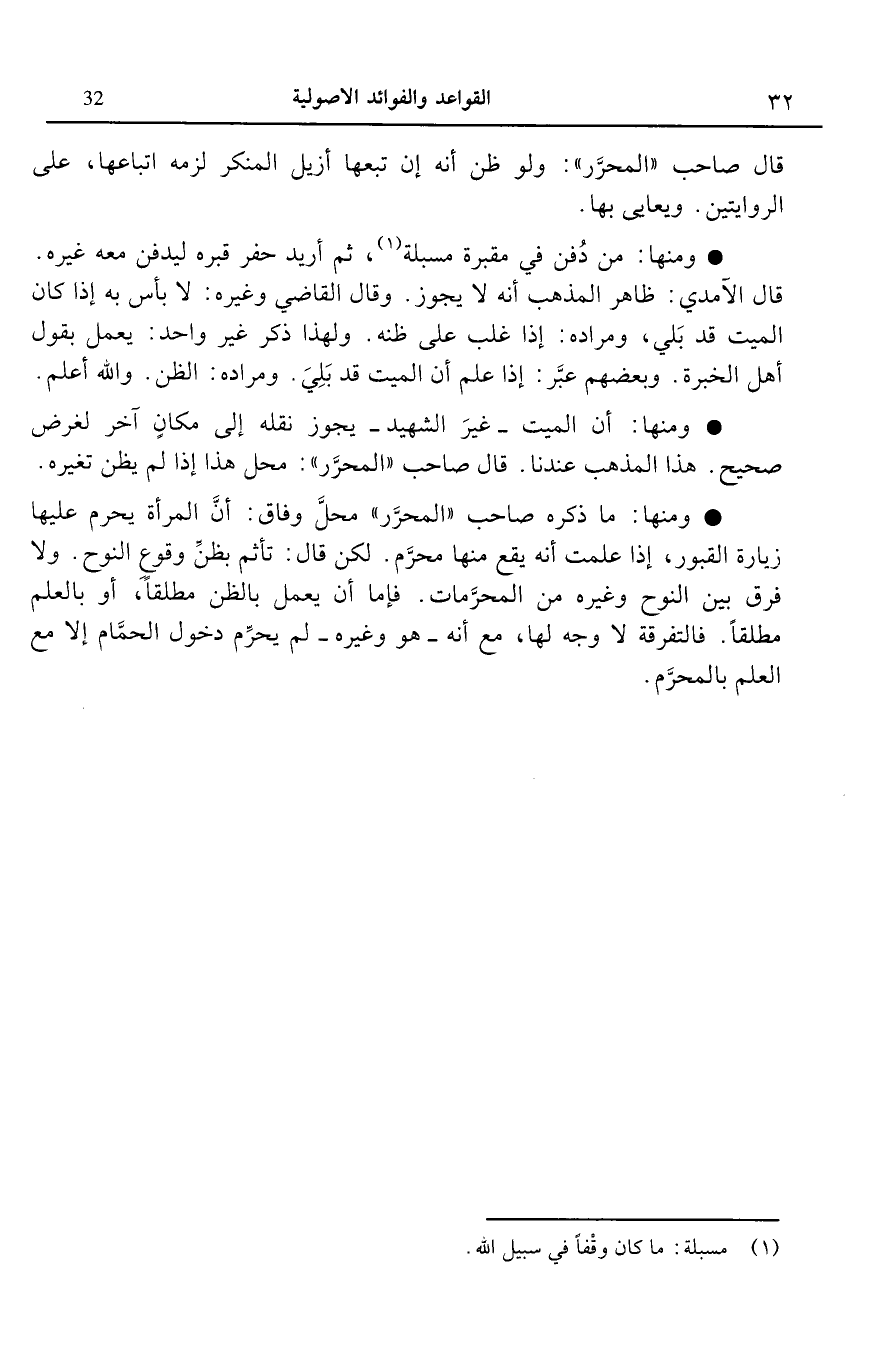 ٣٢ القواعد والفوائد الاصولية 32
قال صاحب «المحرَّر»: ولو ظن أنه إن تبعها أزيل المنكر لزمه اتباعها، على
الروايتين. ويعايى بها.
● ومنها: من دُفن في مقبرة مسبلة(١)، ثم أريد حفر قبره ليدفن معه غيره.
قال الآمدي: ظاهر المذهب أنه لا يجوز. وقال القاضي وغيره: لا بأس به إذا كان
الميت قد بَلي، ومراده: إذا غلب على ظنه. ولهذا ذكر غير واحد: يعمل بقول
أهل الخبرة. وبعضهم عبَّر: إذا علم أن الميت قد بَلِيَ. ومراده: الظن. والله أعلم.
● ومنها: أن الميت ـ غيرَ الشهيد ـ يجوز نقله إلى مكانٍ آخر لغرض
صحيح. هذا المذهب عندنا. قال صاحب «المحرَّر»: محل هذا إذا لم يظن تغيره.
● ومنها: ما ذكره صاحب «المحرَّر» محلَّ وفاق: أنَّ المرأة يحرم عليها
زيارة القبور، إذا علمت أنه يقع منها محرَّم. لكن قال: تأثم بظنِّ وقوعِ النوح. ولا
فرق بين النوح وغيره من المحرَّمات. فإما أن يعمل بالظن مطلقاً، أو بالعلم
مطلقاً. فالتفرقة لا وجه لها، مع أنه ـ هو وغيره ـ لم يحرِّم دخول الحمَّام إلا مع
العلم بالمحرَّم.
(١) مسبلة: ما كان وقْفاً في سبيل الله.